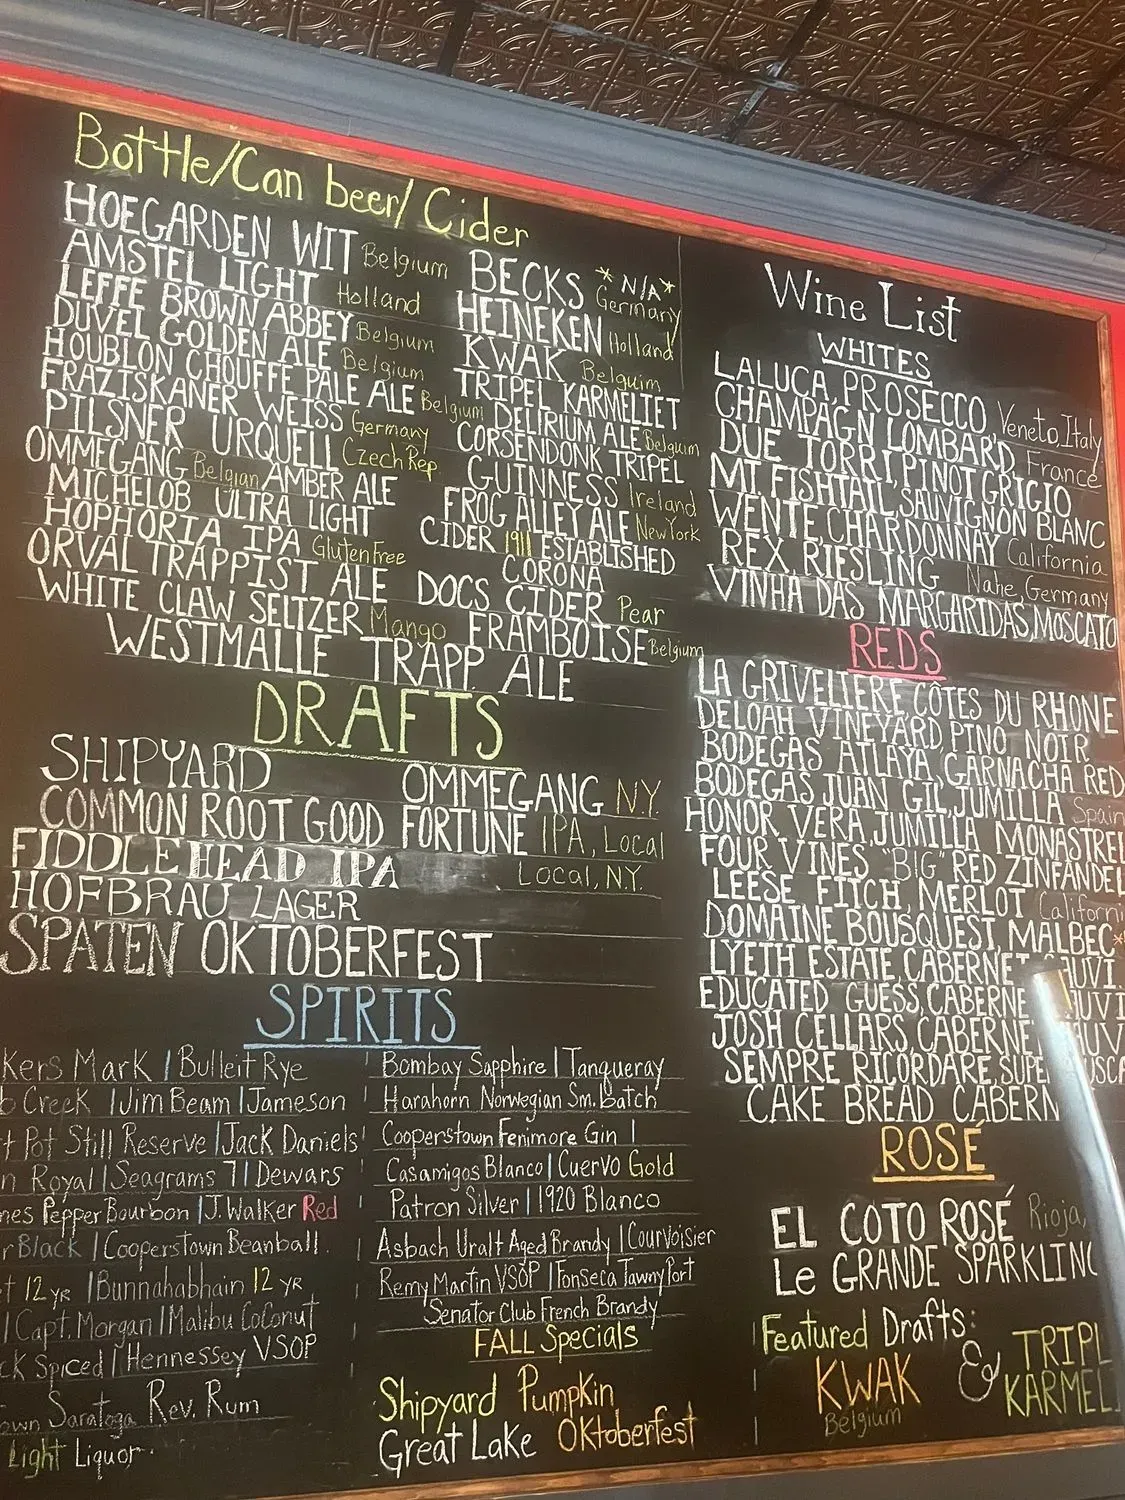 Bottle/Can beer/ Cider
HOEGARDEN WIT Belgium
AMSTEL LIGHT Holland
LEFFE BROWN ABBEY Belgium
DUVEL GOLDEN ALE Belgium
HOUBLON CHOUFFE PALE ALE Belgium
FRAZISKANER WEISS Germany
PILSNER URQUELL Czech Rep
OMMEGANG Belgian AMBER ALE
MICHELOB ULTRA LIGHT
HOPHORIA IPA Gluten Free
ORVAL TRAPPIST ALE
WHITE CLAW SELTZER Mango
WESTMALLE TRAPP ALE
BECKS *N/A* Germany
HEINEKEN Holland
KWAK Belguim
TRIPEL KARMELIET
DELIRIUM ALE Belguim
CORSENDONK TRIPEL
GUINNESS Ireland
FROG ALLEY ALE New York
CIDER 1911 ESTABLISHED
CORONA
DOCS CIDER Pear
FRAMBOISE Belgium
DRAFTS
SHIPYARD
OMMEGANG N.Y.
COMMON ROOT GOOD FORTUNE IPA, Local
FIDDLEHEAD IPA Local, N.Y.
HOFBRAU LAGER
SPATEN OKTOBERFEST
SPIRITS
kers Mark | Bulleit Rye
Creek | Jim Beam | Jameson
t Pot Still Reserve | Jack Daniels'
n Royal | Seagrams 7 | Dewars
nes Pepper Bourbon | J. Walker Red
r Black | Cooperstown Beanball
t 12 YR | Bunnahabhain 12 YR
| Capt. Morgan | Malibu Coconut
ck Spiced | Hennessey VSOP
own Saratoga Rev. Rum
Light Liquor
Bombay Sapphire | Tangueray
Harahorn Norwegian Sm. Batch
Cooperstown Fenimore Gin |
Casamigos Blanco | Cuervo Gold
Patron Silver | 1920 Blanco
Asbach Uralt Aged Brandy | Courvoisier
Remy Martin VSOP | Fonseca Tawny Port
Senator Club French Brandy
FALL Specials
Shipyard Pumpkin
Great Lake Oktoberfest
Wine List
WHITES
LALUCA, PROSECCO Veneto, Italy
CHAMPAGN LOMBARD, France
DUE TORRI, PINOT GRIGIO
MT. FISHTAIL, SAUVIGNON BLANC
WENTE, CHARDONNAY California
REX, RIESLING Nahe, Germany
VINHA DAS MARGARIDAS, MOSCATO
REDS
LA GRIVELIERE CÔTES DU RHONE
DELOAH VINEYARD, PINO NOIR
BODEGAS ATLAYA, GARNACHA RED
BODEGAS JUAN GIL, JUMILLA Spain
HONOR VERA, JUMILLA MONASTREL
FOUR VINES "BIG" RED ZINFANDEL
LEESE FITCH, MERLOT Californi
DOMAINE BOUSQUEST, MALBEC*
LYETH ESTATE, CABERNET AUVI
EDUCATED GUESS, CABERNE AUVI
JOSH CELLARS, CABERNE AUV
SEMPRE RICORDARE, SUPE USCA
CAKE BREAD CABERN
ROSÉ
EL COTO ROSÉ Rioja,
Le GRANDE SPARKLING
Featured Drafts:
KWAK Belgium & TRIPL KARMEL